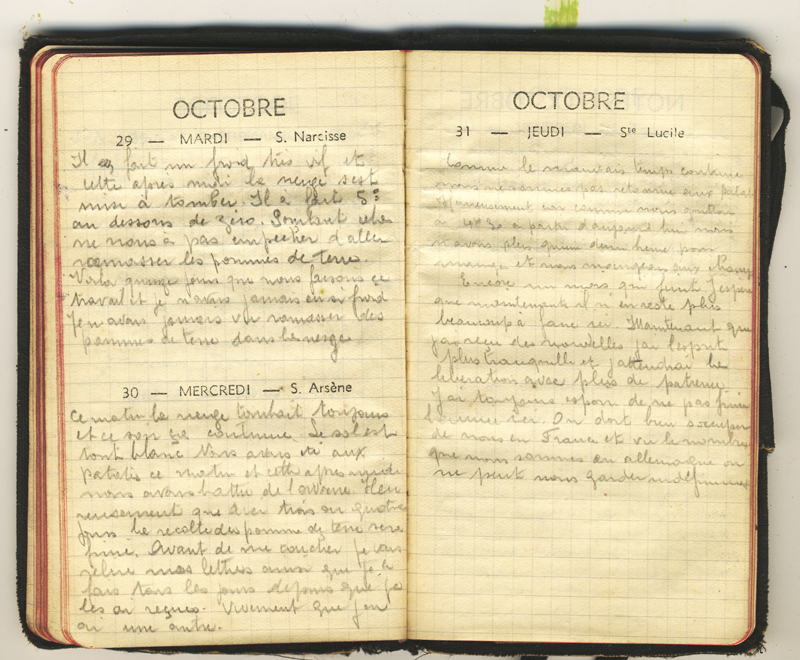 OCTOBRE
29 — MARDI — S. Narcisse
Il fait un froid très vif et
cette après midi la neige s'est
mise à tomber. Il a fait 5°
au dessous de zéro. Pourtant cela
ne nous a pas empêcher d'aller
ramasser les pommes de terre.
Voila quinze jours que nous faisons ce
travail et je n'avais jamais eu si froid
Je n'avais jamais vu ramasser des
pommes de terre dans la neige
30 — MERCREDI — S. Arsène
Ce matin la neige tombait toujours
et ce soir ça continue. Le sol est
tout blanc Nous avons été aux
patates ce matin et cette après midi
nous avons battu de l'avoine. Heu
reusement que d'ici trois ou quatre
jours la récolte des pomme de terre sera
finie. Avant de me coucher je vais
relire mes lettres ainsi que je le
fais tous les jours depuis que je
les ai reçues. Vivement que j'en
ai une autre.
OCTOBRE
31 — JEUDI — Ste Lucile
Comme le mauvais temps continue
nous ne sommes pas retourné aux patates
car comme nous
à 4h30 à partir d'aujourd'hui nous
n'avons plus qu'une demi heure pour
manger et nous mangeons aux champs
Encore un mois qui finit J'espère
que maintenant il n'en reste plus
beaucoup à faire ici. Maintenant que
j'ai reçu des nouvelles j'ai l'esprit
plus tranquille et j'attendrai la
libération avec plus de patience
J'ai toujours espoir de ne pas finir
ici. On doit bien s'occuper
de nous en France et vu le nombre
que nous sommes en allemagne on
ne peut nous garder indéfiniment